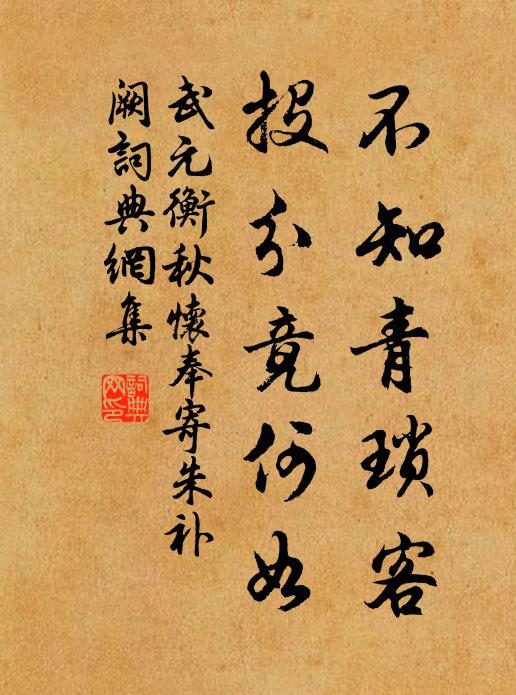 不知青瑣客
投分竟何如
武元衡秋懷奉寄朱补
闕詞典網集
詞典网印